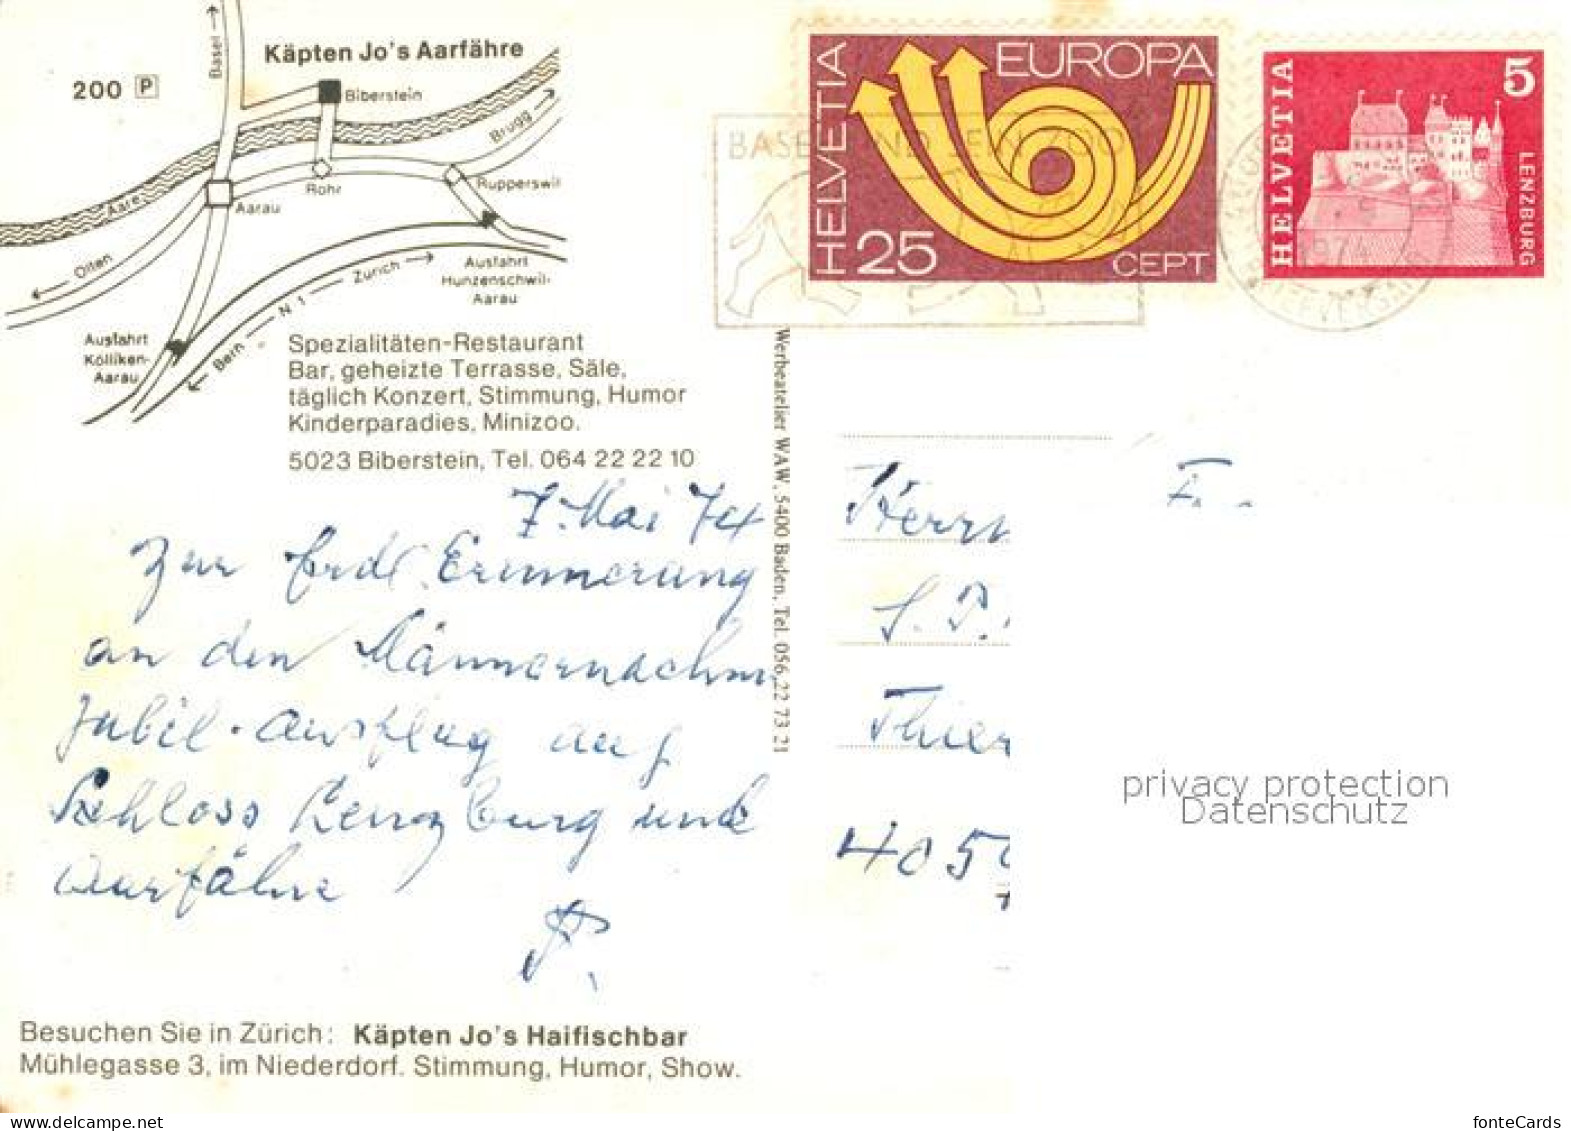 Käpten Jo's Aarfähre
200 P
Basel
Biberstein
Brugg
Rohr
Rupperswil
Aarau
Aare
Olten
Zürich
N 1
Bern
Ausfahrt
Hunzenschwil-
Aarau
Ausfahrt
Kölliken-
Aarau
Spezialitäten-Restaurant
Bar, geheizte Terrasse, Säle,
täglich Konzert, Stimmung, Humor
Kinderparadies, Minizoo.
5023 Biberstein, Tel. 064 22 22 10
7. Mai 74
Zur frdl. Erinnerung
an den Männernachm
Jubil.-Ausflug auf
Schloss Lenzburg und
Aarfähre
Besuchen Sie in Zürich: Käpten Jo's Haifischbar
Mühlegasse 3, im Niederdorf. Stimmung, Humor, Show.
Werbeatelier WAW, 5400 Baden, Tel. 056,22 73 21
HELVETIA
EUROPA
25
CEPT
HELVETIA
5
LENZBURG
BASEL UND SEIN ZOO
1974
BRIEFVERSAND
Herrn
Thier
405
privacy protection
Datenschutz
fonteCards